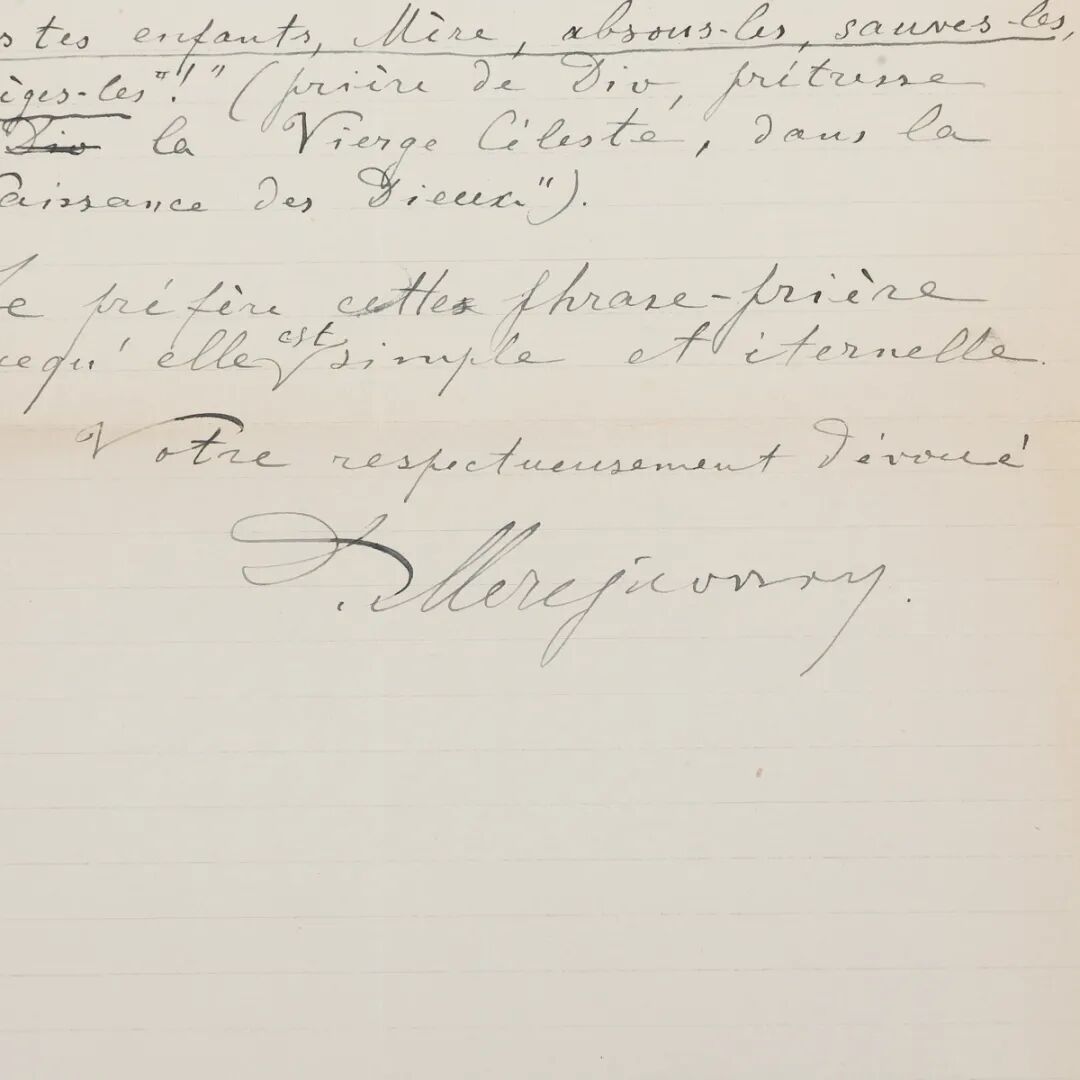 s tes enfants, Mère, absous-les, sauves-les,
èges-les"!" (prière de Dio, prêtresse
Dio la Vierge Céleste, dans la
aissance des Dieux").
Je préfère cette phrase-prière
cequ'elle est simple et éternelle.
Votre respectueusement dévoué
D. Merejkovsky.